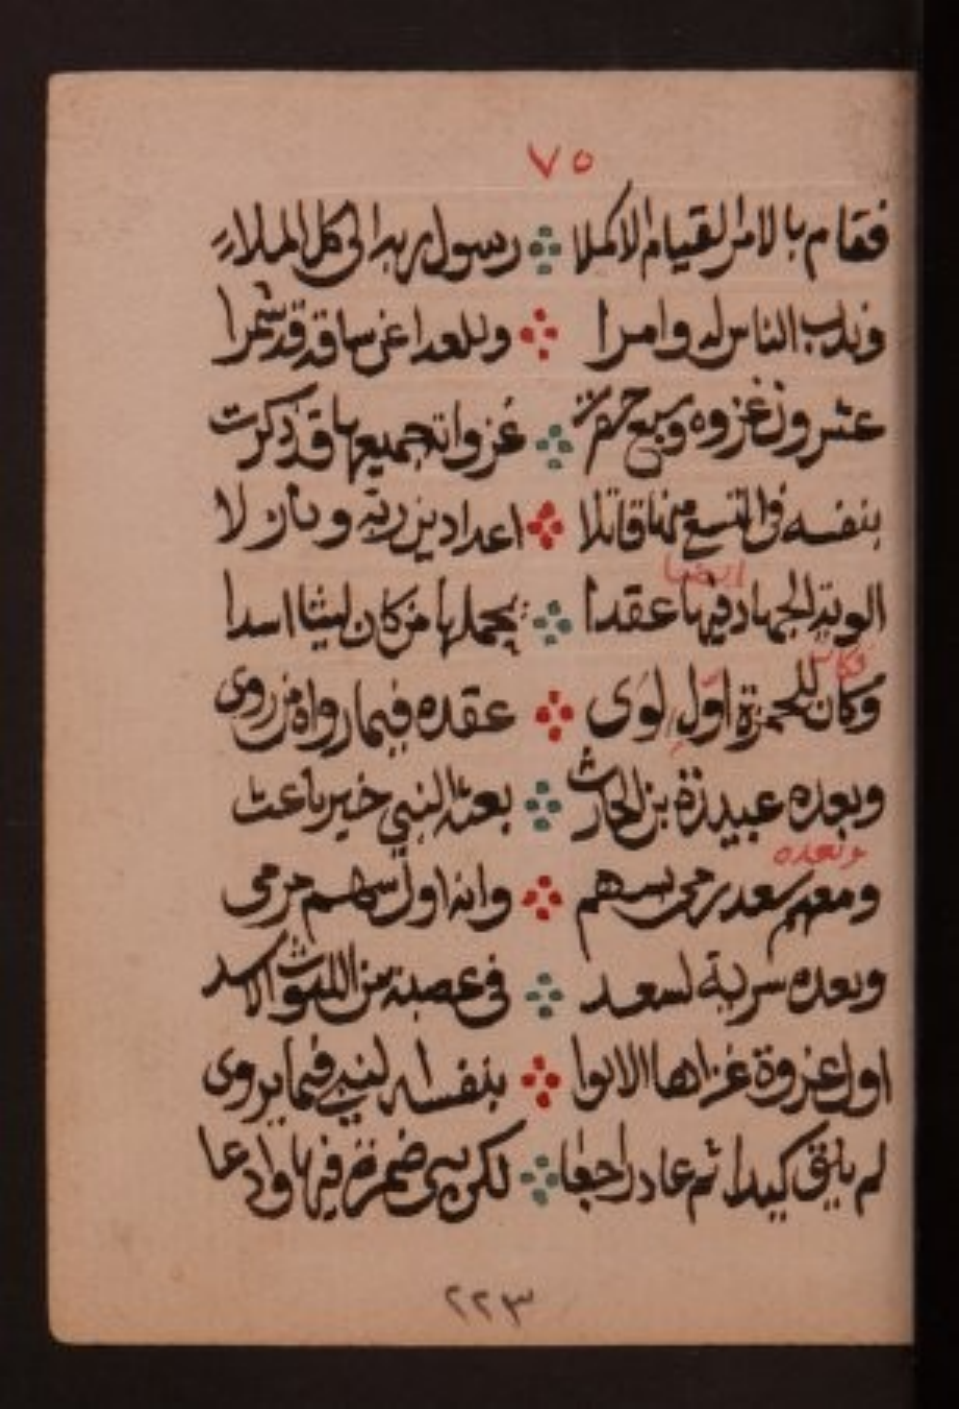 ٧٥
فقام بالامر القيام الاكملا رسول ربه الى كل الملاء
وندب الناس له وامرا وللعدا عن ساقه قد شمرا
عشرون غزوه وسبع حررت غزواته جميعها قد ذكرت
بنفسه في التسع منها قاتلا اعدا دين ربه ونازلا
ايضا
الوية الجهاد فيها عقدا يحملها من كان ليثا اسدا
فكان
وكان للحمزة اول لوى عقده فيما رواه من روى
وبعده عبيدة بن الحارث بعثه النبي خير باعث
وبعده
ومعهم سعد رمى بسهم وانه اول سهم رمى
وبعده سرية لسعد في عصبة من الليوث الاسد
اول غزوة غزاها الابوا بنفسه النبي فيما يروى
لم يلق كيدا ثم عاد راجعا لكن بني ضمرة فيها وادعا
٢٢٣